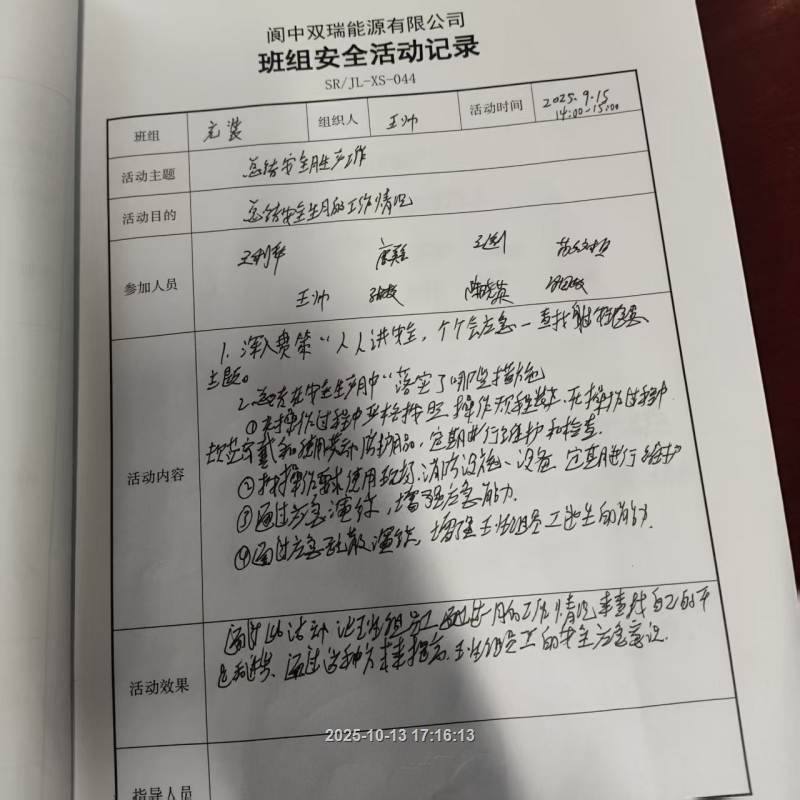 阆中双瑞能源有限公司
班组安全活动记录
SR/JL-XS-044
班组 充装 组织人 王帅 活动时间 2025.9.15
14:00-15:00
活动主题 总结安全月生产工作
活动目的 总结安全生产月的工作情况
参加人员
王帅
活动内容
1. 深入贯策“人人讲安全,个个会应急—查找身边
主题。
2. 总结在安全生产月中“落实了哪些措施
①在操作过程中严格按照操作规程 在操作过程中
穿戴和使用劳动防护用品,定期进行维护和检查.
②按操作要求使用现场消防设施、设备 定期进行维护
③通过应急演练,增强应急能力.
④通过应急疏散演练,增强 班组员工逃生的能力.
活动效果
通过此活动 让 班组员工 通过 月的工作情况来查找自己的不
足和进步. 通过这种方 来提高 班组员工的安全应急意识.
指导人员
2025-10-13 17:16:13